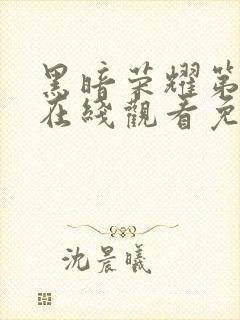 黑暗荣耀第
在线观看免
沈晨曦